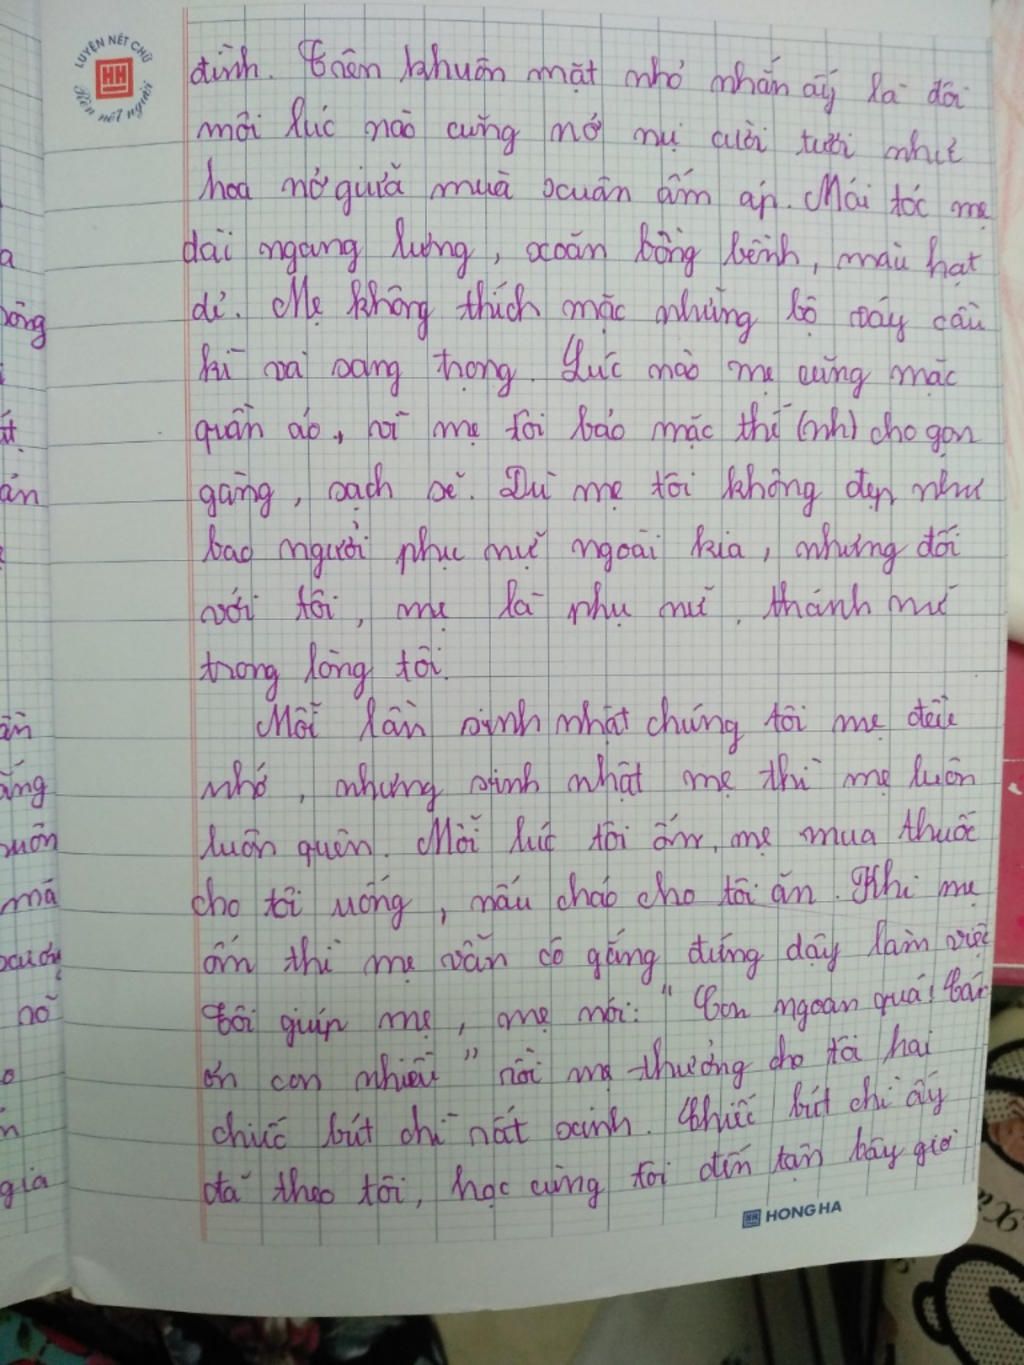 LUYỆN NÉT CHỮ
HH
Rèn nết người
đình. Trên khuôn mặt nhỏ nhắn ấy là đôi
môi lúc nào cũng nở nụ cười tươi như
hoa nở giữa mùa xuân ấm áp. Mái tóc mẹ
dài ngang lưng, xoăn bồng bềnh, màu hạt
dẻ. Mẹ không thích mặc những bộ váy cầu
kì và sang trọng. Lúc nào mẹ cũng mặc
quần áo, vì mẹ tôi bảo mặc thế (nh) cho gọn
gàng, sạch sẽ. Dù mẹ tôi không đẹp như
bao người phục nữ ngoài kia, nhưng đối
với tôi, mẹ là phụ nữ, thánh nữ
trong lòng tôi.
Mỗi lần sinh nhật chúng tôi mẹ đều
nhớ, nhưng sinh nhật mẹ thì mẹ luôn
luôn quên. Mỗi lúc tôi ốm, mẹ mua thuốc
cho tôi uống, nấu cháo cho tôi ăn. Khi mẹ
ốm thì mẹ vẫn cố gắng đứng dậy làm việc
Tôi giúp mẹ, mẹ nói: "Con ngoan quá! Cảm
ơn con nhiều" rồi mẹ thưởng cho tôi hai
chiếc bút chì rất xinh. Chiếc bút chì ấy
đã theo tôi, học cùng tôi đến tận bây giờ
HH HONG HA
a
ông
ất
án
ần
ắng
muôn
mã
nó
o
n
gia